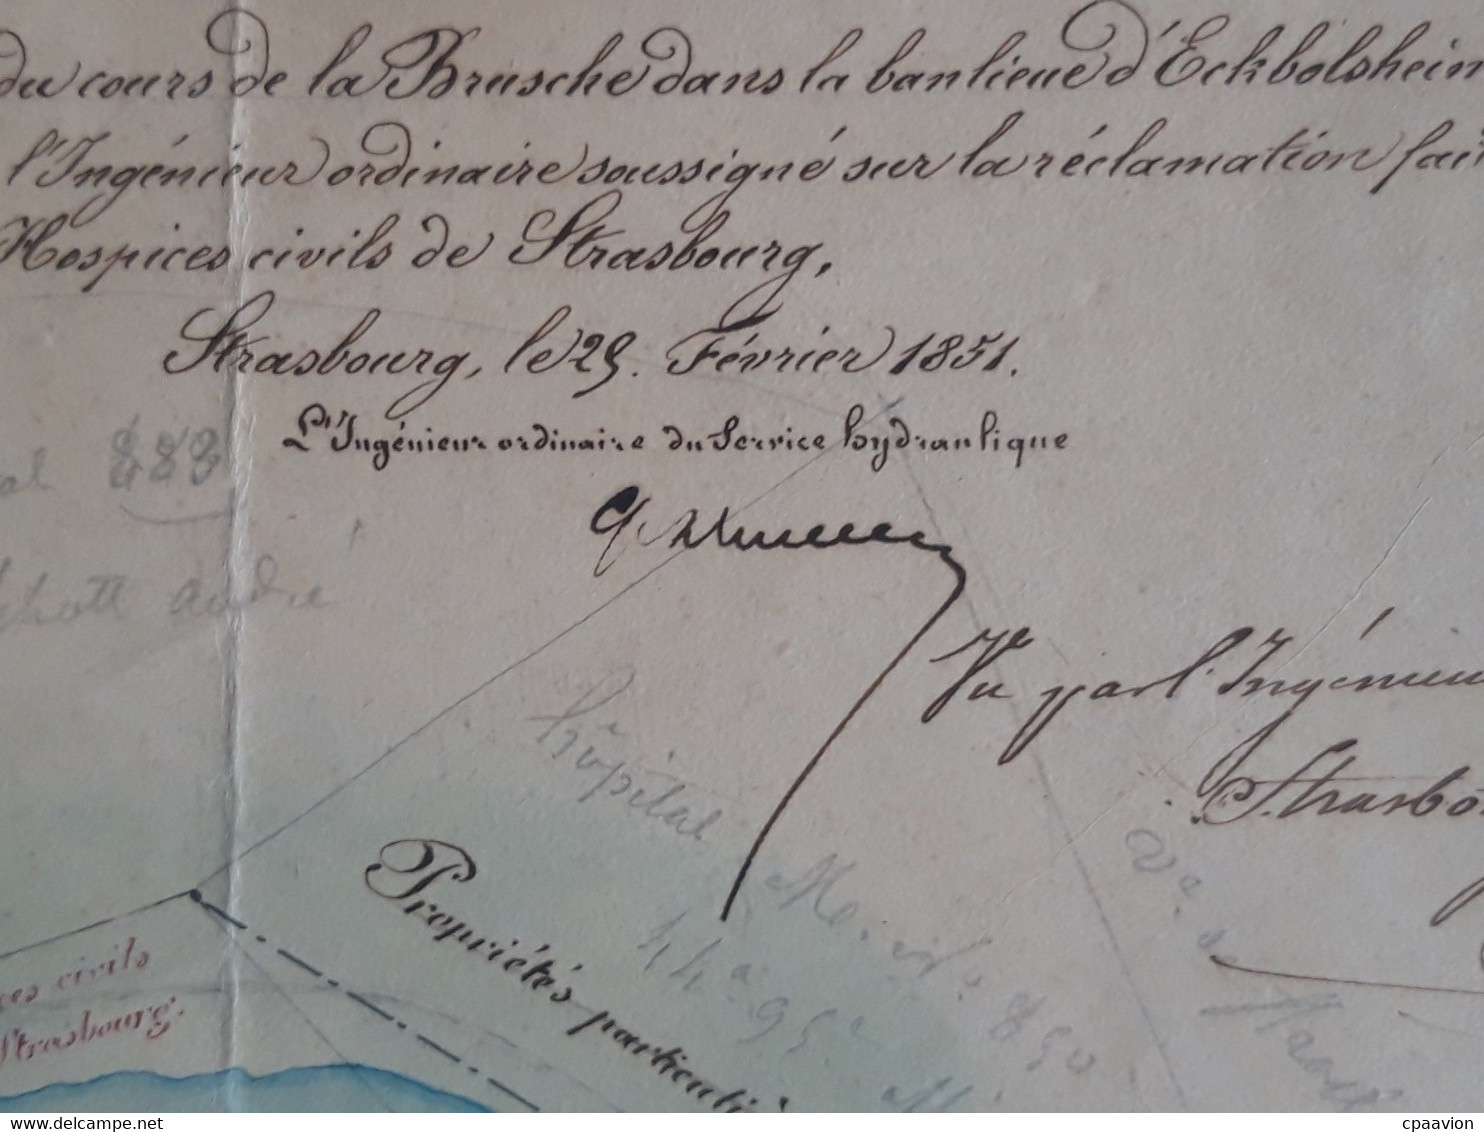 du cours de la Brusche dans la banlieue d'Eckbolsheim
l'Ingénieur ordinaire soussigné sur la réclamation fait
Hospices civils de Strasbourg,
Strasbourg, le 25. Février 1851.
L'Ingénieur ordinaire du Service hydraulique
andré
Vu par l'Ingénieu
Strasbo
hôpital
850
44ª 95ᶜ
Propriétés particuliè
civils
Strasbourg.
delcampe.net
cpaavion